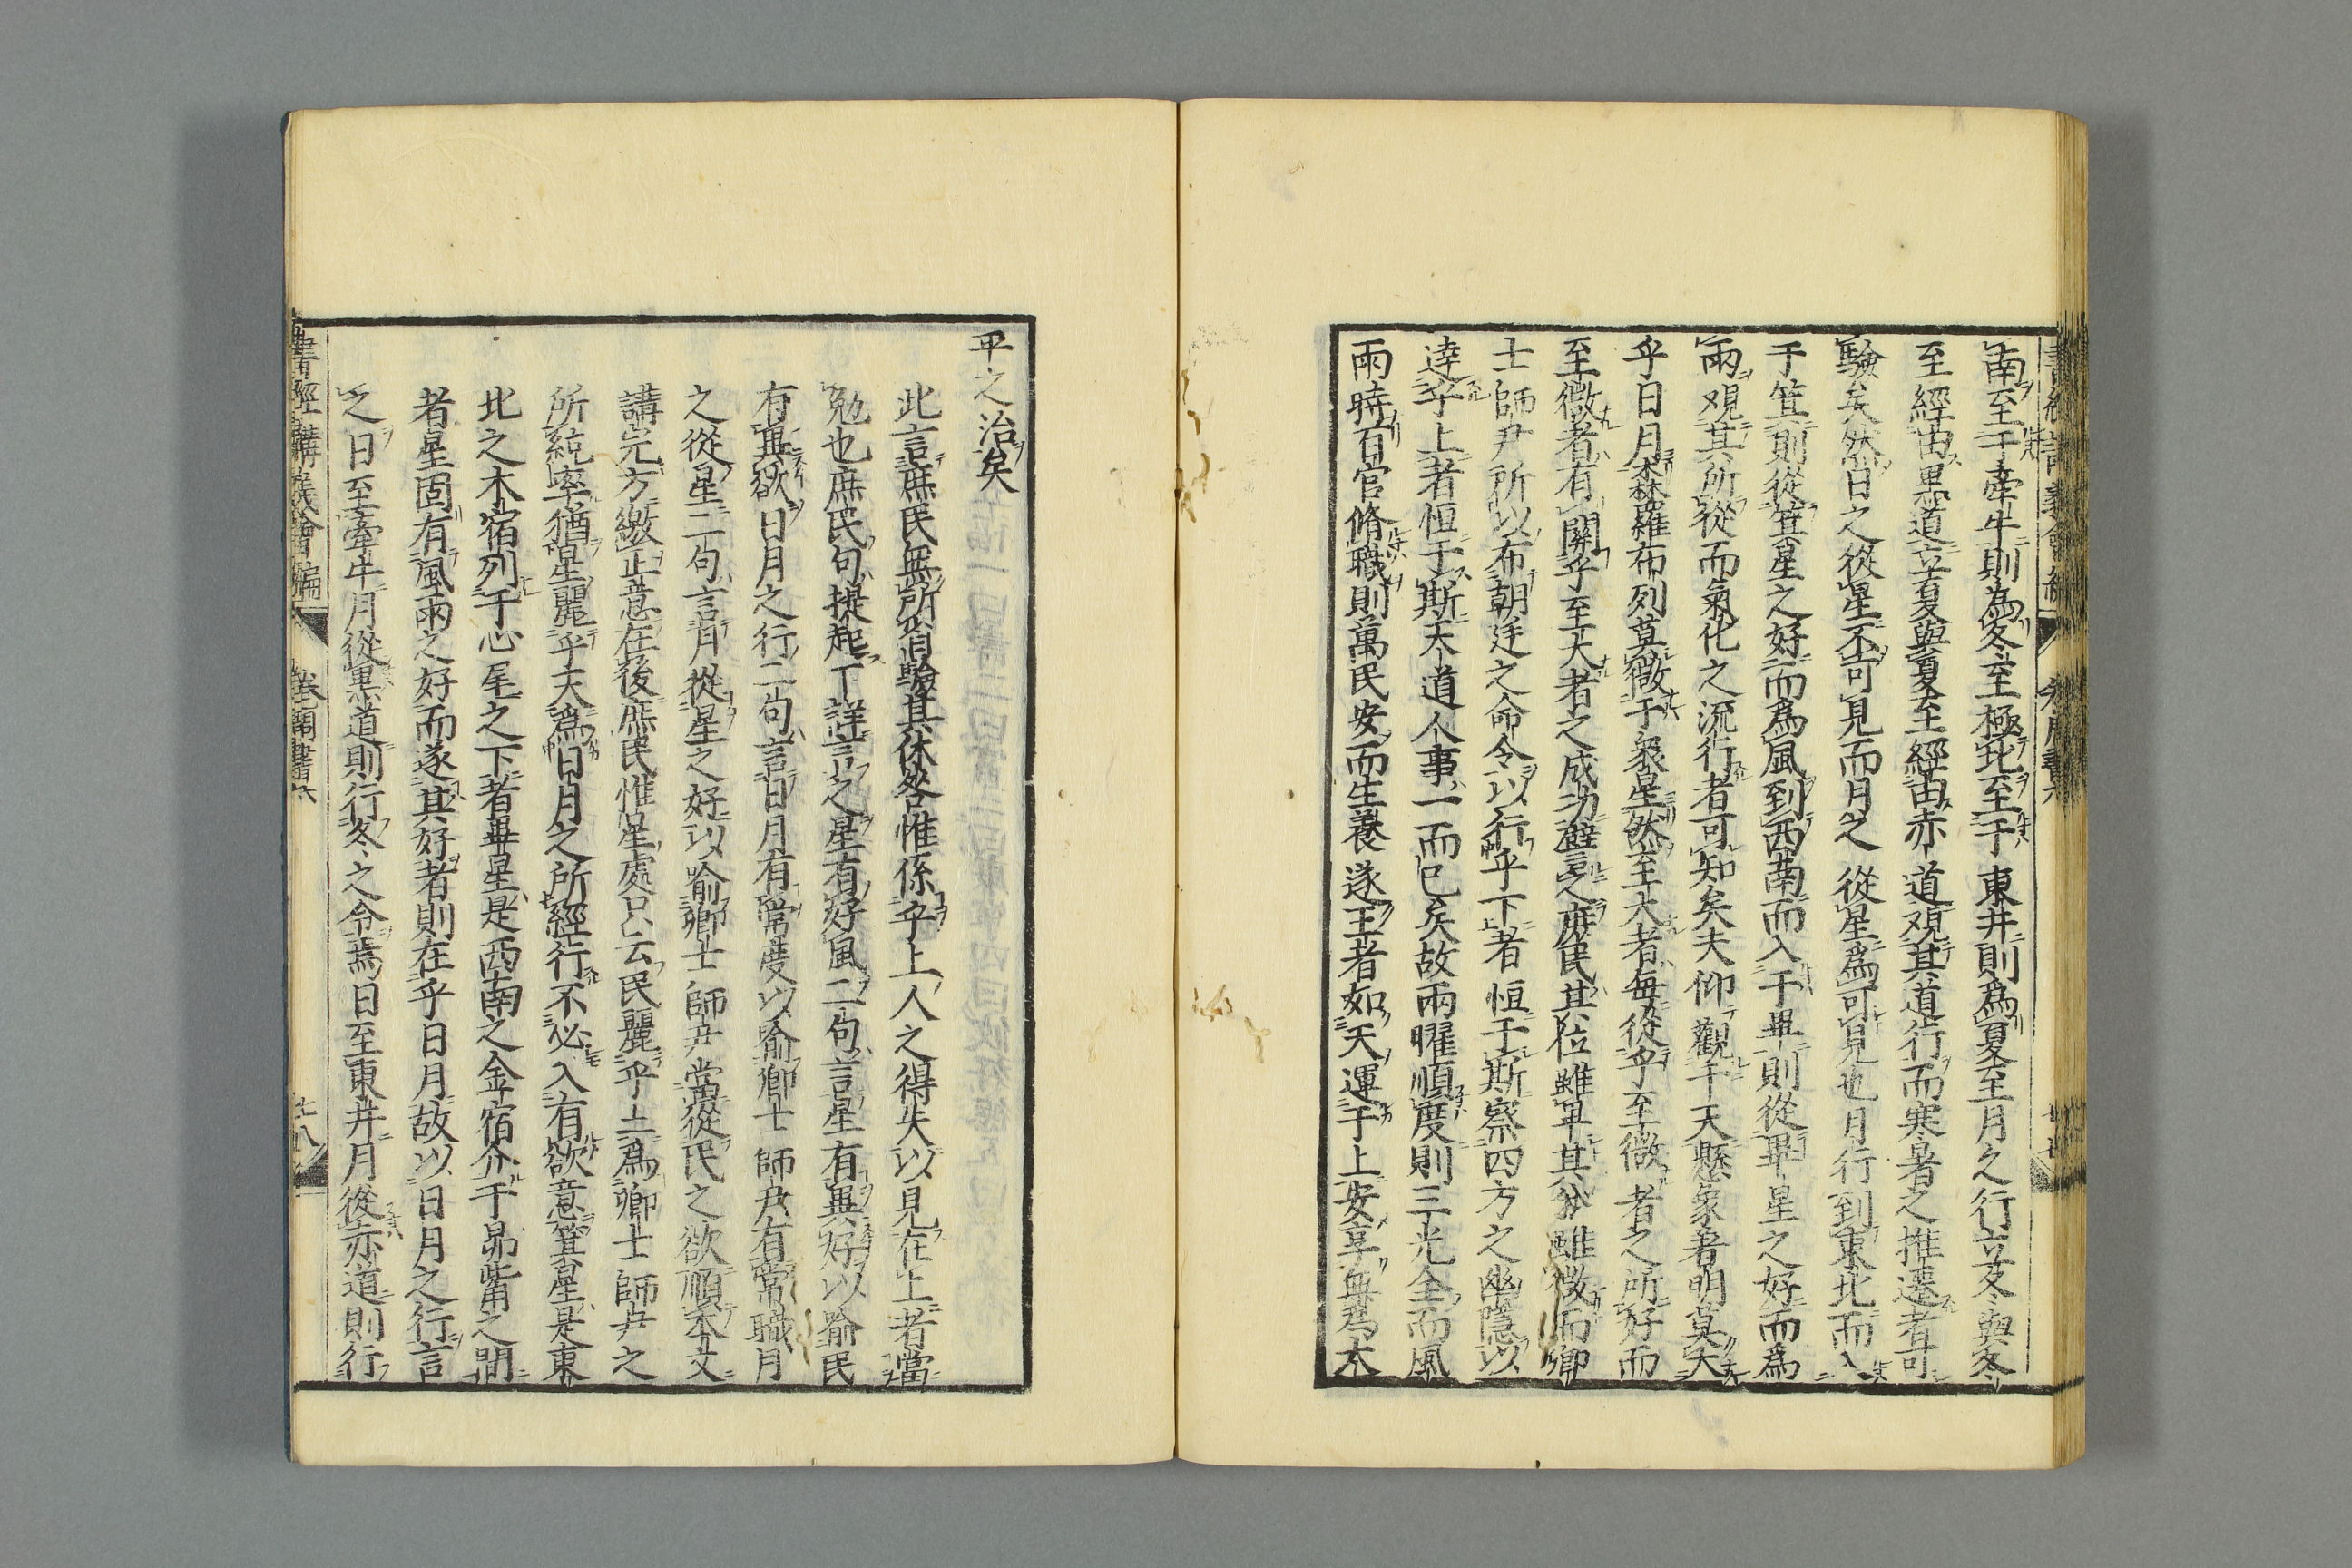 南至于牽牛則為冬至極北至于東井則為夏至月之行立冬與冬
至經由黒道立夏與夏至經由赤道观其道行而寒暑之推遷者可
驗矣然日之從星不可見而月之從星為可見也月行到東北而入
于箕則從箕星之好而為風到西南而入于畢則從畢星之好而為
雨观其所從而氣化之流行者可知矣夫仰觀于天懸象著明莫大
乎日月森羅布列莫微于衆星然至大者每從乎至微者之所好而
至微者有關乎至大者之成功譬言之庶民其位雖卑其分雖微而卿
士師尹所以布朝廷之命令以行乎下者恒于斯察四方之幽隱以
達乎上者恒于斯天道人事一而已矣故兩曜順度則三光全而風
雨時百官脩職則萬民安而生養遂王者如天運于上安享無為太
平之治矣
此言庶民無所省驗其休咎惟係乎上人之得失以見在上者當
勉也庶民句提起下詳言之星有好風二句言星有異好以喻民
有異欲日月之行二句言日月有常度以喻卿士師尹有常職月
之從星二句言月從星之好以喻卿士師尹當從民之欲順本文
講完方繳正意在後庶民惟星處只云民麗乎土為卿士師尹之
所統率猶星麗乎天為日月之所經行不必入有欲意箕星是東
北之木宿列于心尾之下者畢星是西南之金宿介于昴觜之間
者星固有風雨之好而遂其好者則在乎日月故以日月之行言
之日至牽牛月從黒道則行冬之令焉日至東井月從赤道則行
書經講義會編 卷周書六